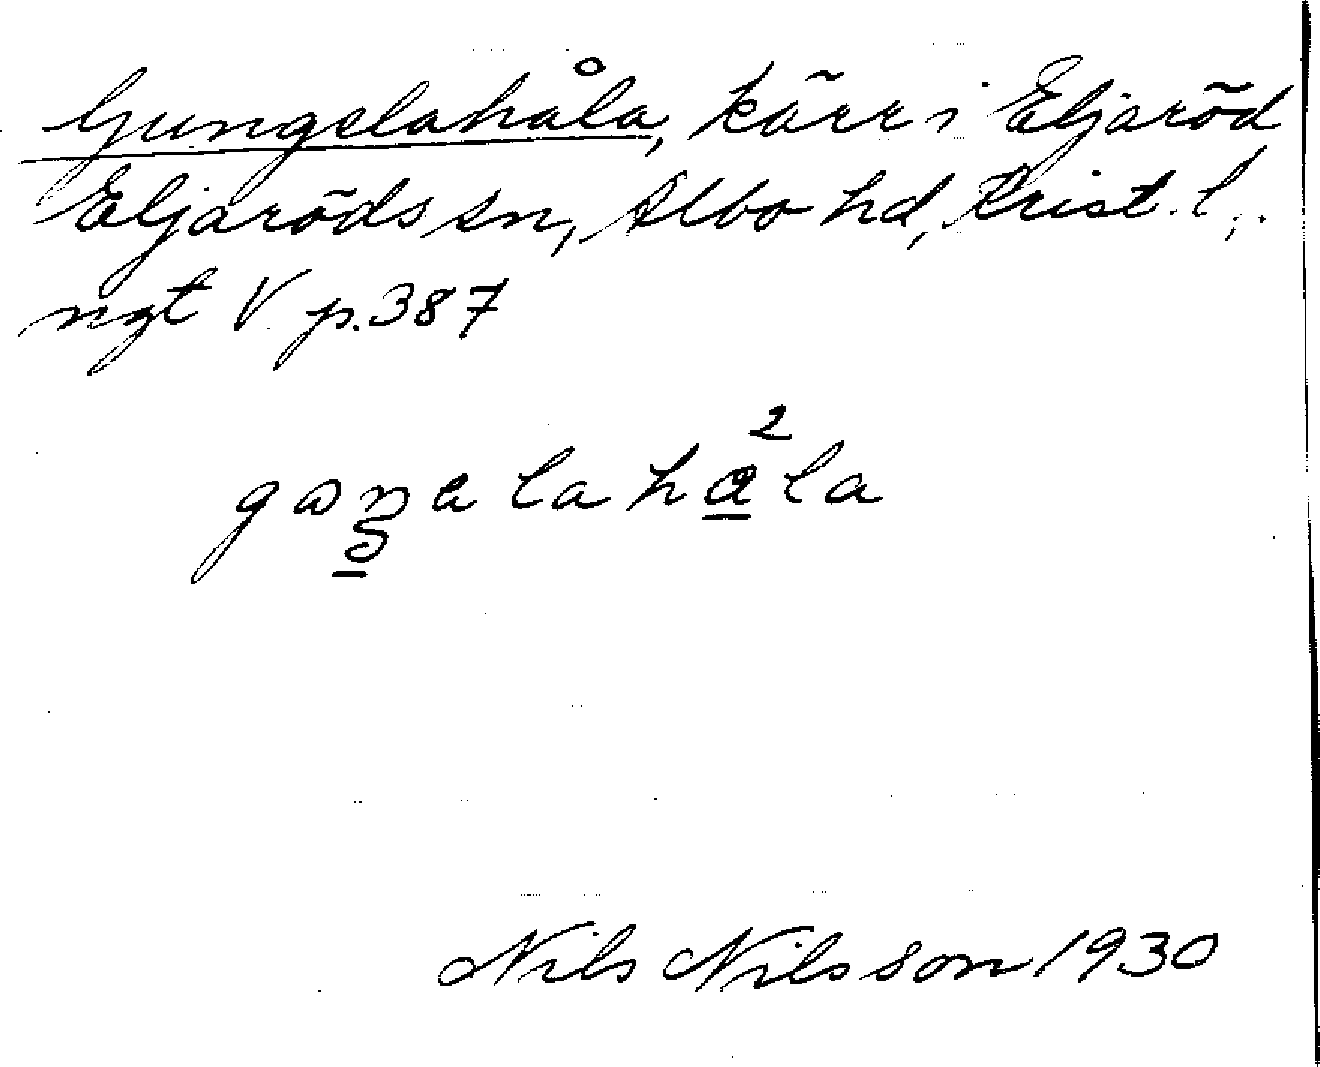 Gungelahåla, kärr i Eljaröd
Eljaröds sn, Albo hd, Krist. l.,
ngt V p. 387
Nils Nilsson 1930